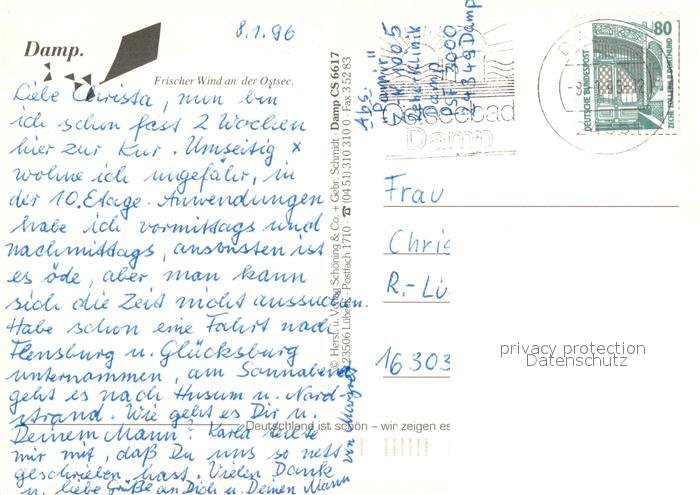 8.1.96
Damp.
Frischer Wind an der Ostsee.
Liebe Christa, nun bin
ich schon fast 2 Wochen
hier zur Kur. Umseitig x
wohne ich ungefähr, in
der 10. Etage. Anwendungen
habe ich vormittags und
nachmittags, ansonsten ist
es öde, aber man kann
sich die Zeit nicht aussuchen.
Habe schon eine Fahrt nach
Flensburg u. Glücksburg
unternommen, am Sonnabend
geht es nach Husum u. Nord-
strand. Wie geht es Dir u.
Deinem Mann? Karla teilte
mir mit, daß Du uns so nett
geschrieben hast. Vielen Dank
u. liebe Grüße an Dich u. Deinen Mann
von Margret
© Herst. u. Verlag Schöning & Co. + Gebr. Schmidt · Damp CS 6617
23506 Lübeck · Postfach 1710 · ☎ (04 51) 310 310 0 · Fax 3 52 83
Deutschland ist schön – wir zeigen es
Abs.
Rehaklinik
Damp
PSF 3000
24349 Damp
Ostseebad
Damp
80
DEUTSCHE BUNDESPOST
ZECHE ZOLLERN II, DORTMUND
Frau
Chris
R.-Lu
16 303
privacy protection
Datenschutz